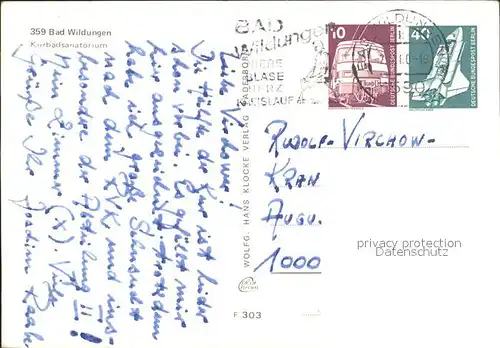 359 Bad Wildungen
Kurbadsanatorium
BAD
Wildungen
NIERE
BLASE
HERZ
KREISLAUF
10
DEUTSCHE BUNDESPOST BERLIN
40
DEUTSCHE BUNDESPOST BERLIN
WOLFG. HANS KLOCKE VERLAG PADERBORN
F 303
Die Hälfte der Kur ist leider
schon vorbei. Es gefällt mir
hier ausgezeichnet, trotzdem
hab ich große Sehnsucht
nach dem RVK und ins-
besondere der Abteilung II!
Mein Zimmer (X) Viele
Grüße Ihr Joachim Raabe
RUDOLF-VIRCHOW-
KRAN
AUGU.
1000
privacy protection
Datenschutz